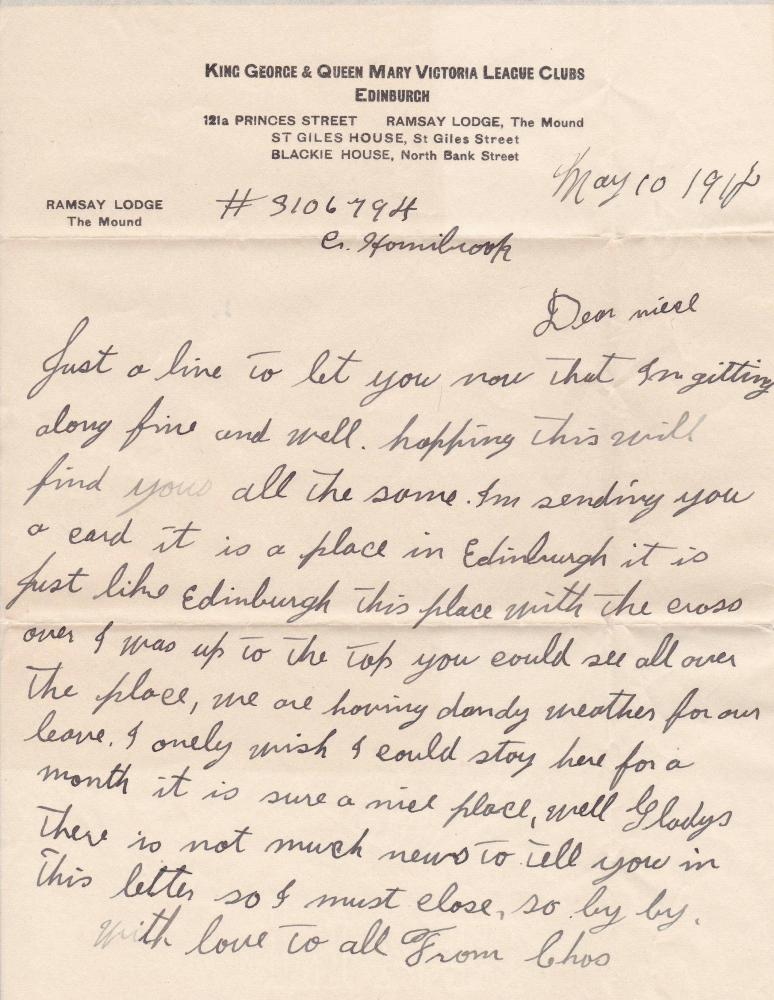 KING GEORGE & QUEEN MARY VICTORIA LEAGUE CLUBS
EDINBURGH
121a PRINCES STREET RAMSAY LODGE, The Mound
ST GILES HOUSE, St Giles Street
BLACKIE HOUSE, North Bank Street
May 10 1918
RAMSAY LODGE
The Mound
# 3106794
C. Hornibrook
Dear niece
Just a line to let you now that Im gitting
along fine and well. hopping this will
find yous all the same. Im sending you
a card it is a place in Edinburgh it is
just like Edinburgh this place with the cross
over I was up to the top you could see all over
the place, we are having dandy weather for our
leave. I onely wish I could stay here for a
month it is sure a nice place, well Gladys
there is not much news to tell you in
this letter so I must close, so by by.
with love to all From Chas